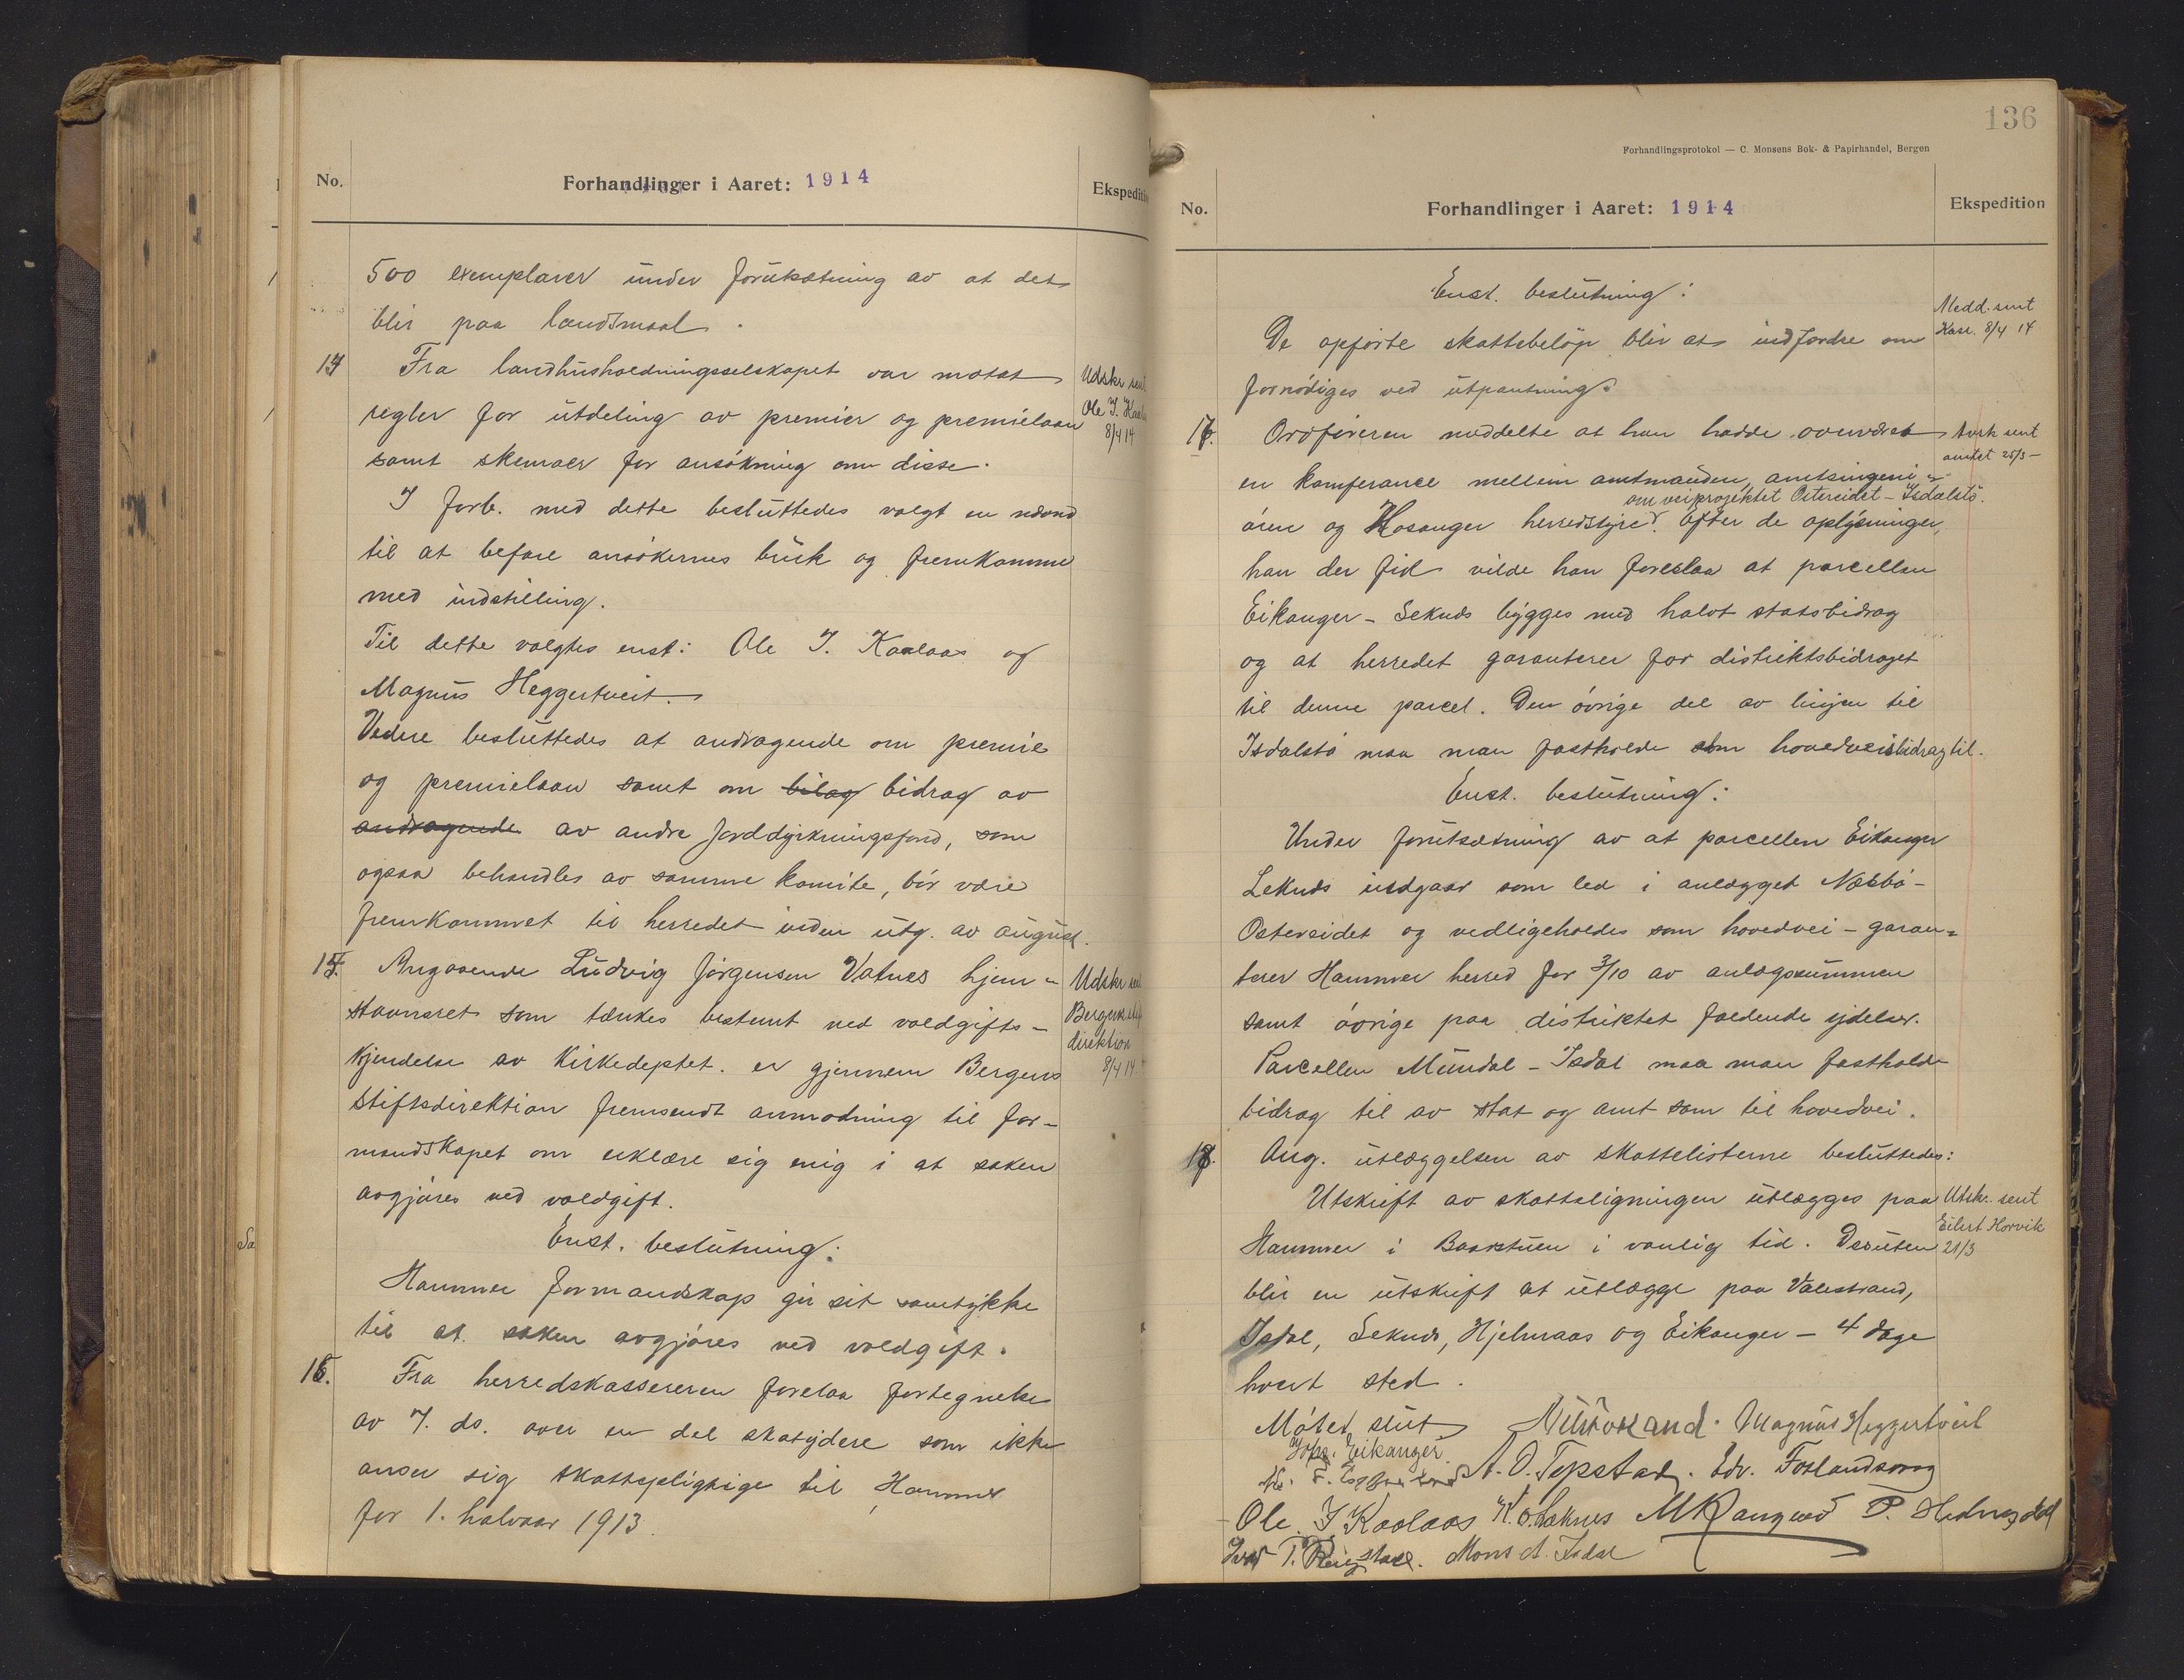 No.
Forhandlinger i Aaret: 1914
Ekspediti
500 exemplarer under forutsætning av at det
blir paa landsmaal.
14
Fra landhusholdningsselskapet var motat
regler for utdeling av premier og premielaan
samt skemaer for ansøkning om disse.
Udskr sent
Ole J. Kaalaas
8/4 14
I forb. med dette besluttedes valgt en nævnd
til at befare ansøkernes bruk og fremkomme
med indstilling.
Til dette valgtes enst: Ole J. Kaalaas og
Magnus Heggertveit.
Videre besluttedes at andragende om premie
og premielaan samt om bilag bidrag av
andragende av andre jorddyrkningsfond, som
ogsaa behandles av samme komite, bør være
fremkommet til herredet inden utg. av august.
15.
Angaaende Ludvig Jørgensen Vatnes hjem-
stavnsret som tænkes bestemt ved voldgifts-
kjendelse av Kirkedeptet. er gjennem Bergens
stiftsdirektion fremsendt anmodning til for-
mandskapet om erklære sig enig i at saken
avgjøres ved voldgift.
Udskr sent
Bergens stif
direktion
8/4 14
Enst. beslutning:
Hammer formandskap gir sit samtykke
til at saken avgjøres ved voldgift.
16.
Fra herredskassereren forelaa fortegnelse
av 7. ds. over en del skatydere som ikke
anser sig skattepligtige til Hammer
for 1. halvaar 1913.
136
Forhandlingsprotokol — C. Monsens Bok- & Papirhandel, Bergen
No.
Forhandlinger i Aaret: 1914
Ekspedition
Enst. beslutning:
De opførte skattebeløp blir at indfordre om
fornødiges ved utpantning.
Medd. sent
Kass. 8/4 14
17.
Ordføreren meddelte at han hadde overværet
en konferance mellem amtmanden, amtsingeni-
om veiprojektet Ostereidet - Isdalstø.
øren og Hosanger herredstyre. Efter de oplysninger,
han der fik vilde han foreslaa at parcellen
Eikanger - Seknds bygges med halvt statsbidrag
og at herredet garanterer for distriktsbidraget
til denne parcel. Den øvrige del av linjen til
Isdalstø maa man fastholde som hovedveisbidrag til.
sent
amtet 25/3 -
Enst. beslutning:
Under forutsætning av at parcellen Eikanger
Leknds indgaar som led i anlægget Næsbø-
Ostereidet og vedligeholdes som hovedvei - garan=
terer Hammer herred for 3/10 av anlægssummen
samt øvrige paa distriktet faldende ydelser.
Parcellen Mundal - Isdal maa man fastholde
bidrag til av stat og amt som til hovedvei.
18.
Ang. utlæggelsen av skattelisterne besluttedes:
Utskrift av skatteligningen utlægges paa
Hammer i Baarstuen i vanlig tid. Desuten
blir en utskrift at utlægge paa Valestrand,
Isdal, Seknds, Hjelmaas og Eikanger - 4 dage
hvert sted.
Utskr. sent
Eilert Horvik
21/3
Møtet slut
Magnus Heggertveit
Johs. Eikanger
A. O. Tepstad. Edv. Foslandsvaag
Ole J Kaalaas
Ivar T. Reigstad. Mons A. Isdal